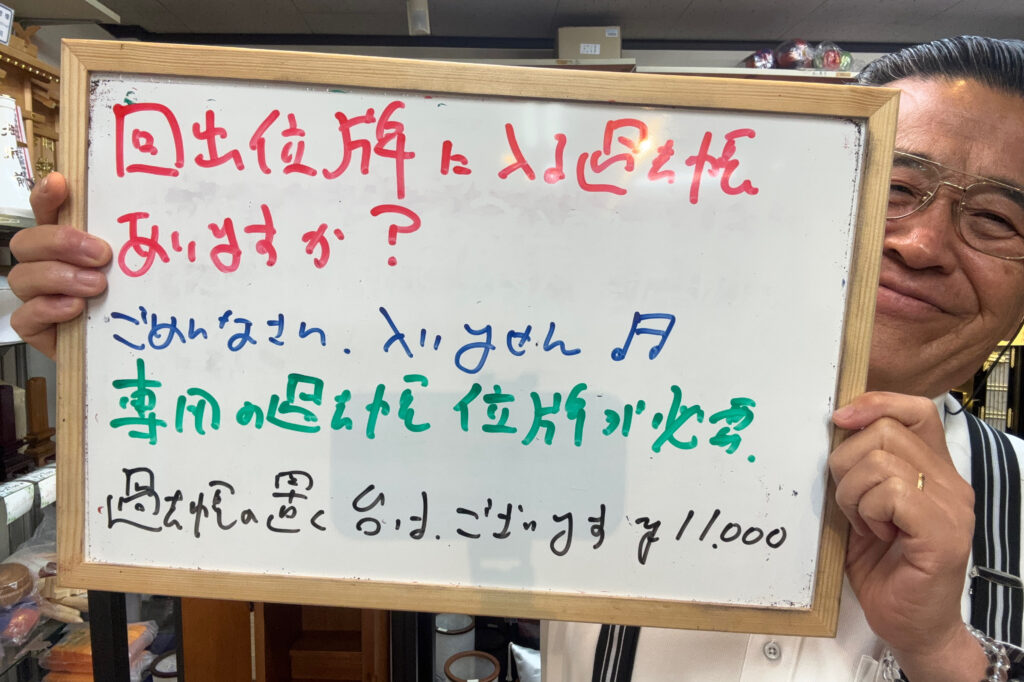 回出位牌に入る過去帳
ありますか？
ごめんなさい、入りません♬
専用の過去帳位牌が必要.
過去帳の置く台は、ございます ¥11.000